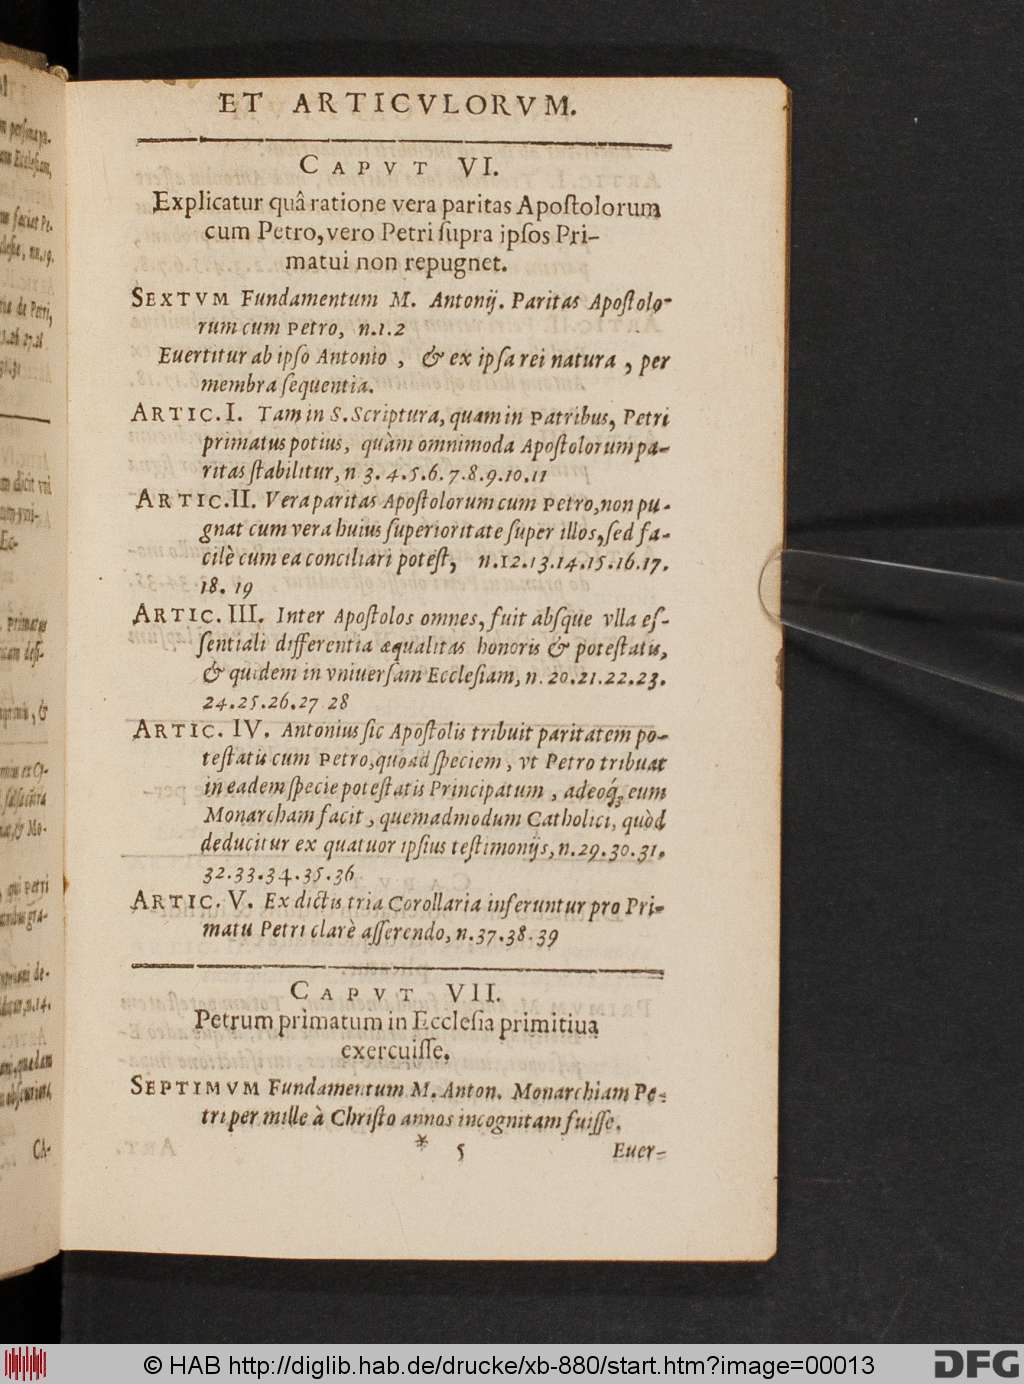 ET ARTICVLORVM.
CAPVT VI.
Explicatur quâ ratione vera paritas Apoſtolorum
cum Petro, vero Petri ſupra ipſos Pri-
matui non repugnet.
SEXTVM Fundamentum M. Antonij. Paritas Apoſtolo-
rum cum Petro, n.1.2
Euertitur ab ipſo Antonio, & ex ipſa rei natura, per
membra ſequentia.
ARTIC. I. Tam in S. Scriptura, quam in Patribus, Petri
primatus potius, quàm omnimoda Apoſtolorum pa-
ritas ſtabilitur, n 3. 4.5.6.7.8.9.10.11
ARTIC. II. Vera paritas Apoſtolorum cum Petro, non pu-
gnat cum vera huius ſuperioritate ſuper illos, ſed fa-
cilè cum ea conciliari poteſt, n.12.13.14.15.16.17.
18. 19
ARTIC. III. Inter Apoſtolos omnes, fuit abſque vlla eſ-
ſentiali differentia æqualitas honoris & poteſtatis,
& quidem in vniuerſam Eccleſiam, n. 20.21.22.23.
24.25.26.27 28
ARTIC. IV. Antonius ſic Apoſtolis tribuit paritatem po-
teſtatis cum Petro, quoad ſpeciem, vt Petro tribuat
in eadem ſpecie poteſtatis Principatum, adeoq́; eum
Monarcham facit, quemadmodum Catholici, quòd
deducitur ex quatuor ipſius teſtimonijs, n.29.30.31.
32.33.34.35.36
ARTIC. V. Ex dictis tria Corollaria inferuntur pro Pri-
matu Petri clarè aſſerendo, n.37.38.39
CAPVT VII.
Petrum primatum in Eccleſia primitiua
exercuiſſe.
SEPTIMVM Fundamentum M. Anton. Monarchiam Pe-
tri per mille à Chriſto annos incognitam fuiſſe.
* 5 Euer-
© HAB http://diglib.hab.de/drucke/xb-880/start.htm?image=00013
DFG